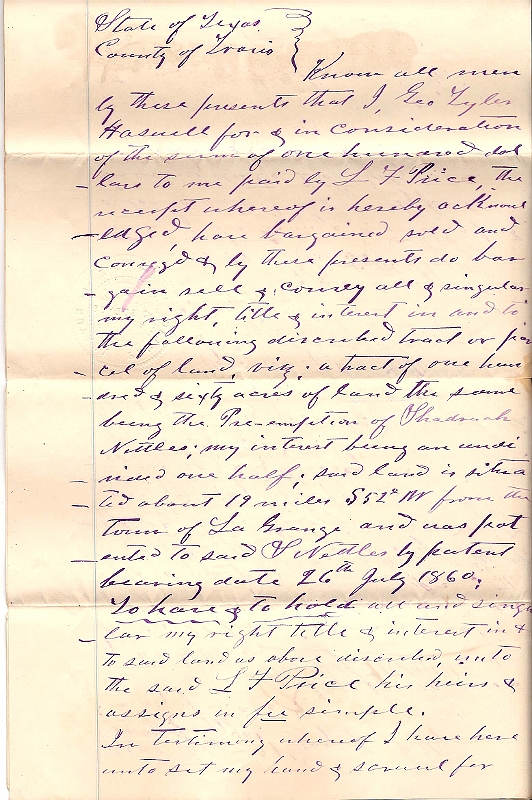 State of Texas
County of Travis
Know all men
by these presents that I, Geo Tyler
Haswell for & in consideration
of the sum of one hundred dol
lars to me paid by L F Price, the
receipt whereof is hereby acknowl
edged, have bargained sold and
conveyd & by these presents do bar
gain sell & convey all & singular
my right, title & interest in and to
the following discribed tract or par
cel of land, viz; a tract of one hun
dred & sixty acres of land the same
being the Pre-emption of Shadrach
Nettles; my interest being an undi
vided one half; said land is situa
ted about 19 miles S 52° W from the
town of La Grange and was pat
ented to said S Nettles by patent
bearing date 26th July 1860;
To have & to hold all and singu
lar my right title & interest in &
to said land as above discribed, unto
the said L F Price his heirs &
assigns in fee simple.
In testimony whereof I have here
unto set my hand & scrawl for